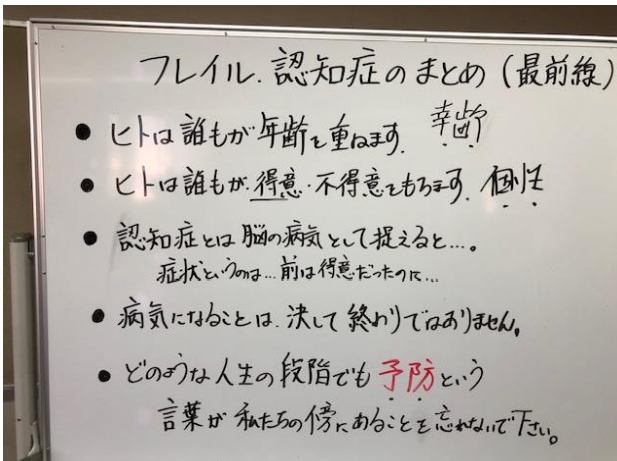 フレイル.認知症のまとめ(最前線)
● ヒトは誰もが年齢を重ねます. 幸齢
● ヒトは誰もが.得意・不得意をもちます. 個性
● 認知症とは脳の病気として捉えると…。
症状というのは…前は得意だったのに…
● 病気になることは.決して終わりではありません。
● どのような人生の段階でも予防という
言葉が私たちの傍にあることを忘れないで下さい。